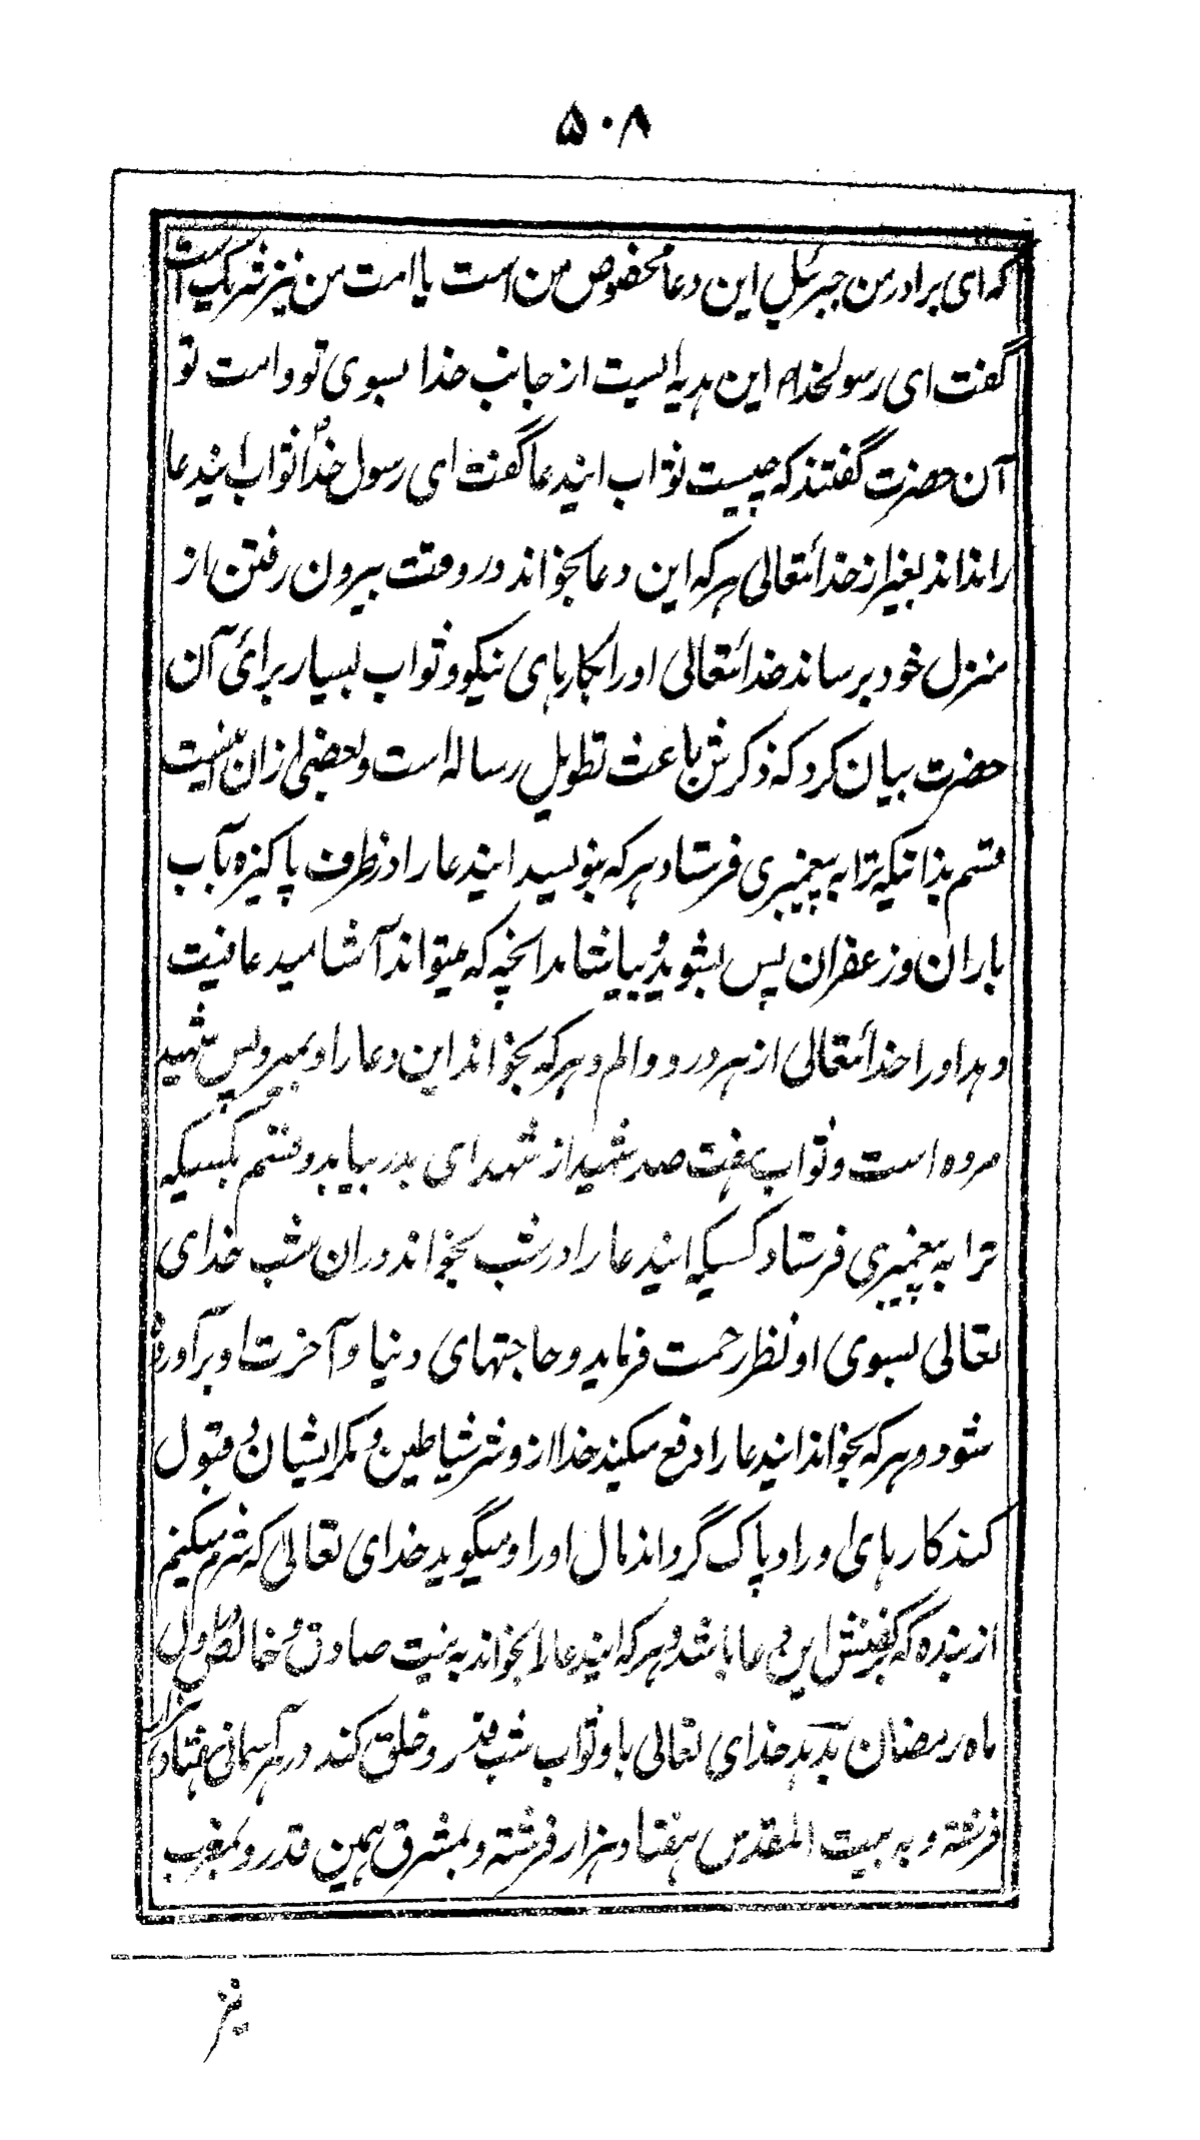 ۵۰۸
که ای برادر من جبرئیل این دعا مخصوص من است یا امت من نیز شریک است
گفت ای رسولخدا این هدیه ایست از جانب خدا بسوی تو و امت تو
آن حضرت گفتند که چیست ثواب ایندعا گفت ای رسول خدا ثواب ایندعا
را نداند بغیر از خدائتعالی هر که این دعا بخواند در وقت بیرون رفتن از
منزل خود برساند خدائتعالی او را بکارهای نیکو و ثواب بسیار برائ آن
حضرت بیان کرد که ذکرش باعث تطویل رساله است و بعضی ازان اینست
قسم بذاتیکه ترا به پیغمبری فرستاد هر که بنویسد ایندعا را در ظرف پاکیزه بآب
باران و زعفران پس بشوید و بیاشامد انچه که میتواند آشامید عافیت
دهد او را خدائتعالی از هر درد و الم و هر که بخواند این دعا را و بمیرد پس شهید
مرده است و ثواب هفت صد شهید از شهدای بدر بیابد و قسم بکسیکه
ترا به پیغمبری فرستاد کسیکه ایندعا را در شب بخواند دران شب خدای
تعالی بسوی او نظر رحمت فرماید و حاجتهای دنیا و آخرت او برآورده
شود و هر که بخواند ایندعا را دفع میکند خدا ازو شر شیاطین و مکر ایشان و قبول
کند کارهای او را و پاک گرداند مال او را و میگوید خدای تعالی که شرم میکنم
از بنده که کفنش این دعا باشد و هر که ایندعا را بخواند به نیت صادق و خالص اول
ماه رمضان بدهد خدای تعالی باو ثواب شب قدر و خلق کند در هر آسمانی هفتاد هزار
فرشته و به بیت المقدس هفتاد هزار فرشته و بمشرق همین قدر و بمغرب
نیز